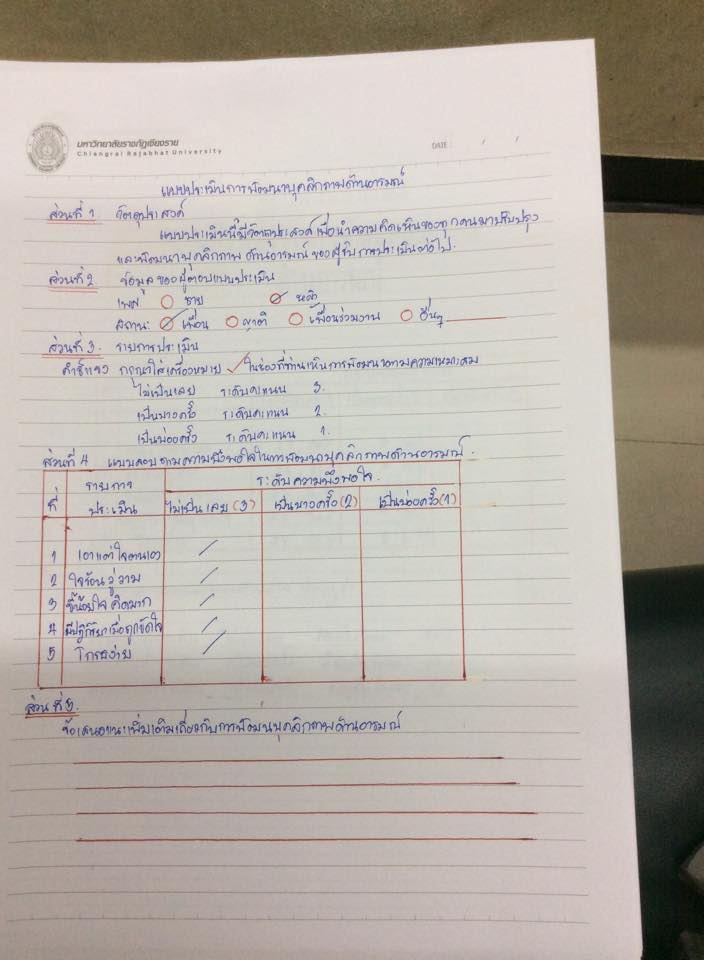 มหาวิทยาลัยราชภัฏเชียงราย
Chiangrai Rajabhat University
DATE : / /
แบบประเมินการพัฒนาบุคลิกภาพด้านอารมณ์
ส่วนที่ 1 วัตถุประสงค์
แบบประเมินนี้มีวัตถุประสงค์เพื่อนำความคิดเห็นของทุกคนมาปรับปรุง
และพัฒนาบุคลิกภาพด้านอารมณ์ของผู้รับการประเมินต่อไป
ส่วนที่ 2 ข้อมูลของผู้ตอบแบบประเมิน
เพศ ชาย หญิง
สถานะ เพื่อน ญาติ เพื่อนร่วมงาน อื่นๆ
ส่วนที่ 3. รายการประเมิน
คำชี้แจง กรุณาใส่เครื่องหมาย ✓ ในช่องที่ท่านเห็นการพัฒนาตามความเหมาะสม
ไม่เป็นเลย ระดับคะแนน 3.
เป็นบางครั้ง ระดับคะแนน 2.
เป็นบ่อยครั้ง ระดับคะแนน 1.
ส่วนที่ 4 แบบสอบถามความพึงพอใจในการพัฒนาบุคลิกภาพด้านอารมณ์.
ที่ รายการประเมิน ระดับความพึงพอใจ.
ไม่เป็นเลย (3) เป็นบางครั้ง (2) เป็นบ่อยครั้ง (1)
1 เอาแต่ใจตนเอง /
2 ใจร้อน วู่วาม /
3 ขี้น้อยใจ คิดมาก /
4 มีปฏิกิริยาเมื่อถูกขัดใจ /
5 โกรธง่าย /
ส่วนที่ 5.
ข้อเสนอแนะเพิ่มเติมเกี่ยวกับการพัฒนาบุคลิกภาพด้านอารมณ์